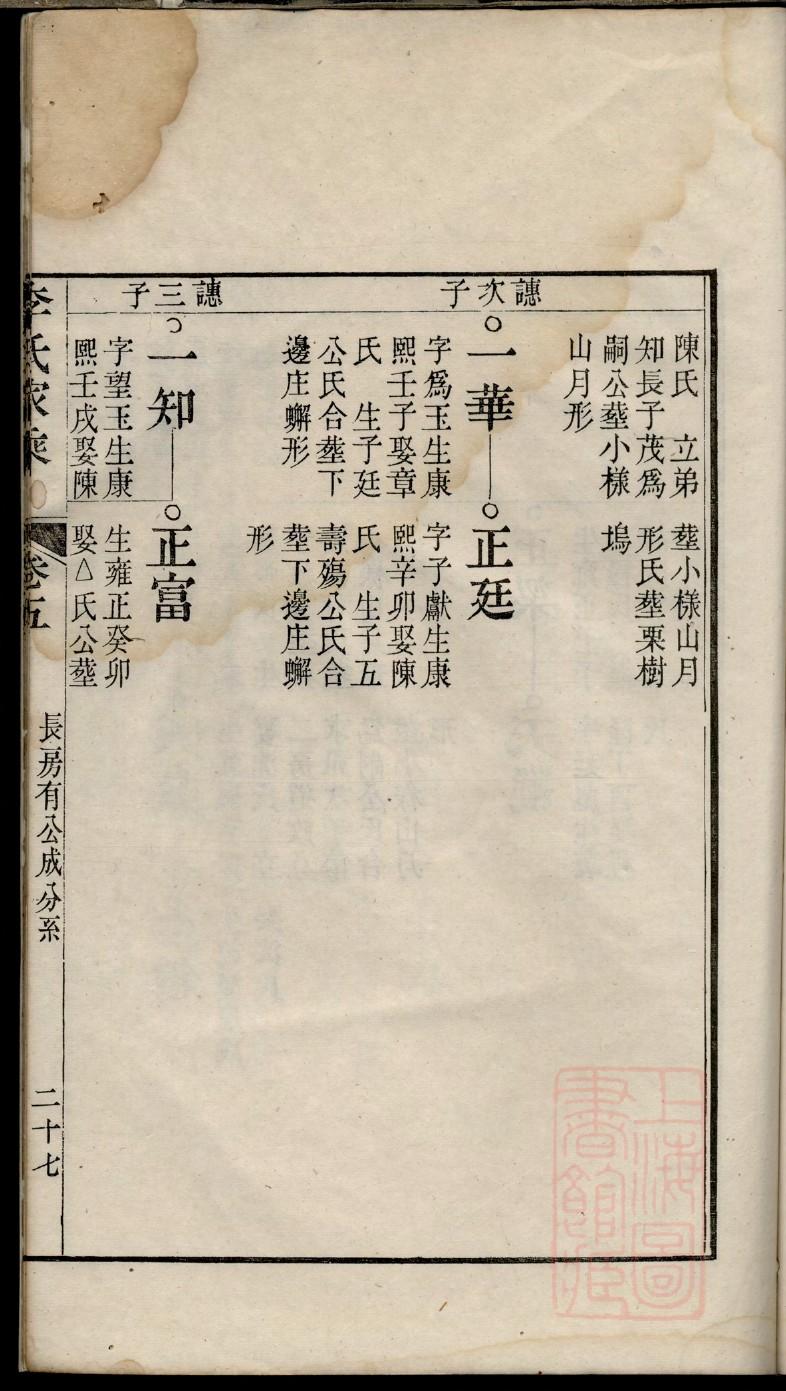 陳氏　立弟
知長子茂爲
嗣公塟小樣
山月形
塟小樣山月
形氏塟栗樹
塢
譓次子
一華
字爲玉生康
熙壬子娶章
氏　生子廷
公氏合塟下
邊庄蠏形
正廷
字子獻生康
熙辛卯娶陳
氏　生子五
壽殤公氏合
塟下邊庄蠏
形
譓三子
一知
字望玉生康
熙壬戌娶陳
正富
生雍正癸卯
娶△氏公塟
李氏家乘
卷五
長房有公成分系
二十七
上海圖
書館藏